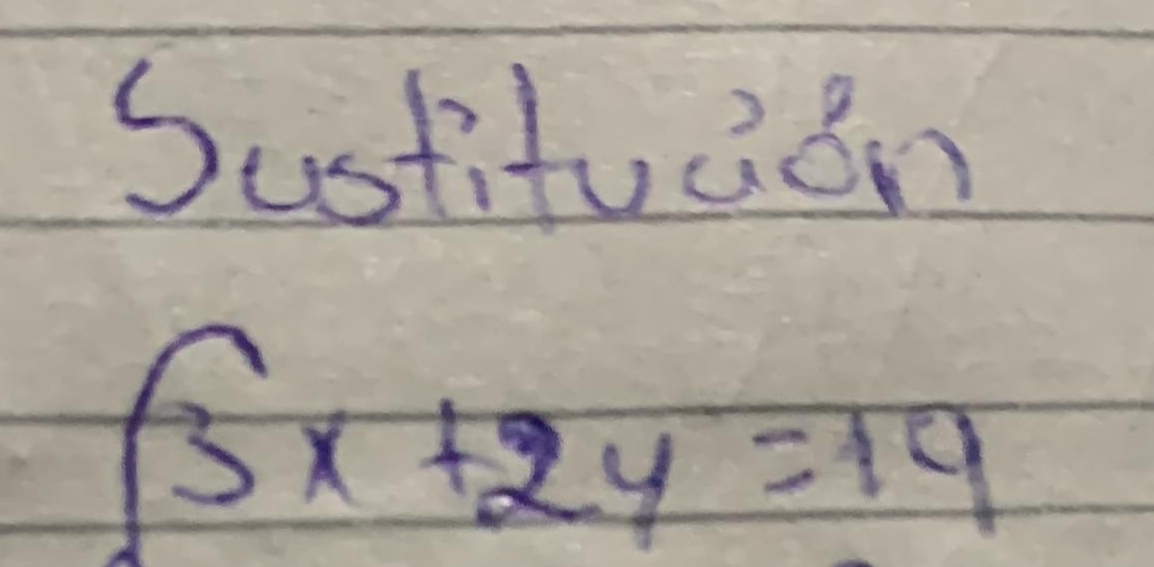 Sustitución
3x + 2y = 19